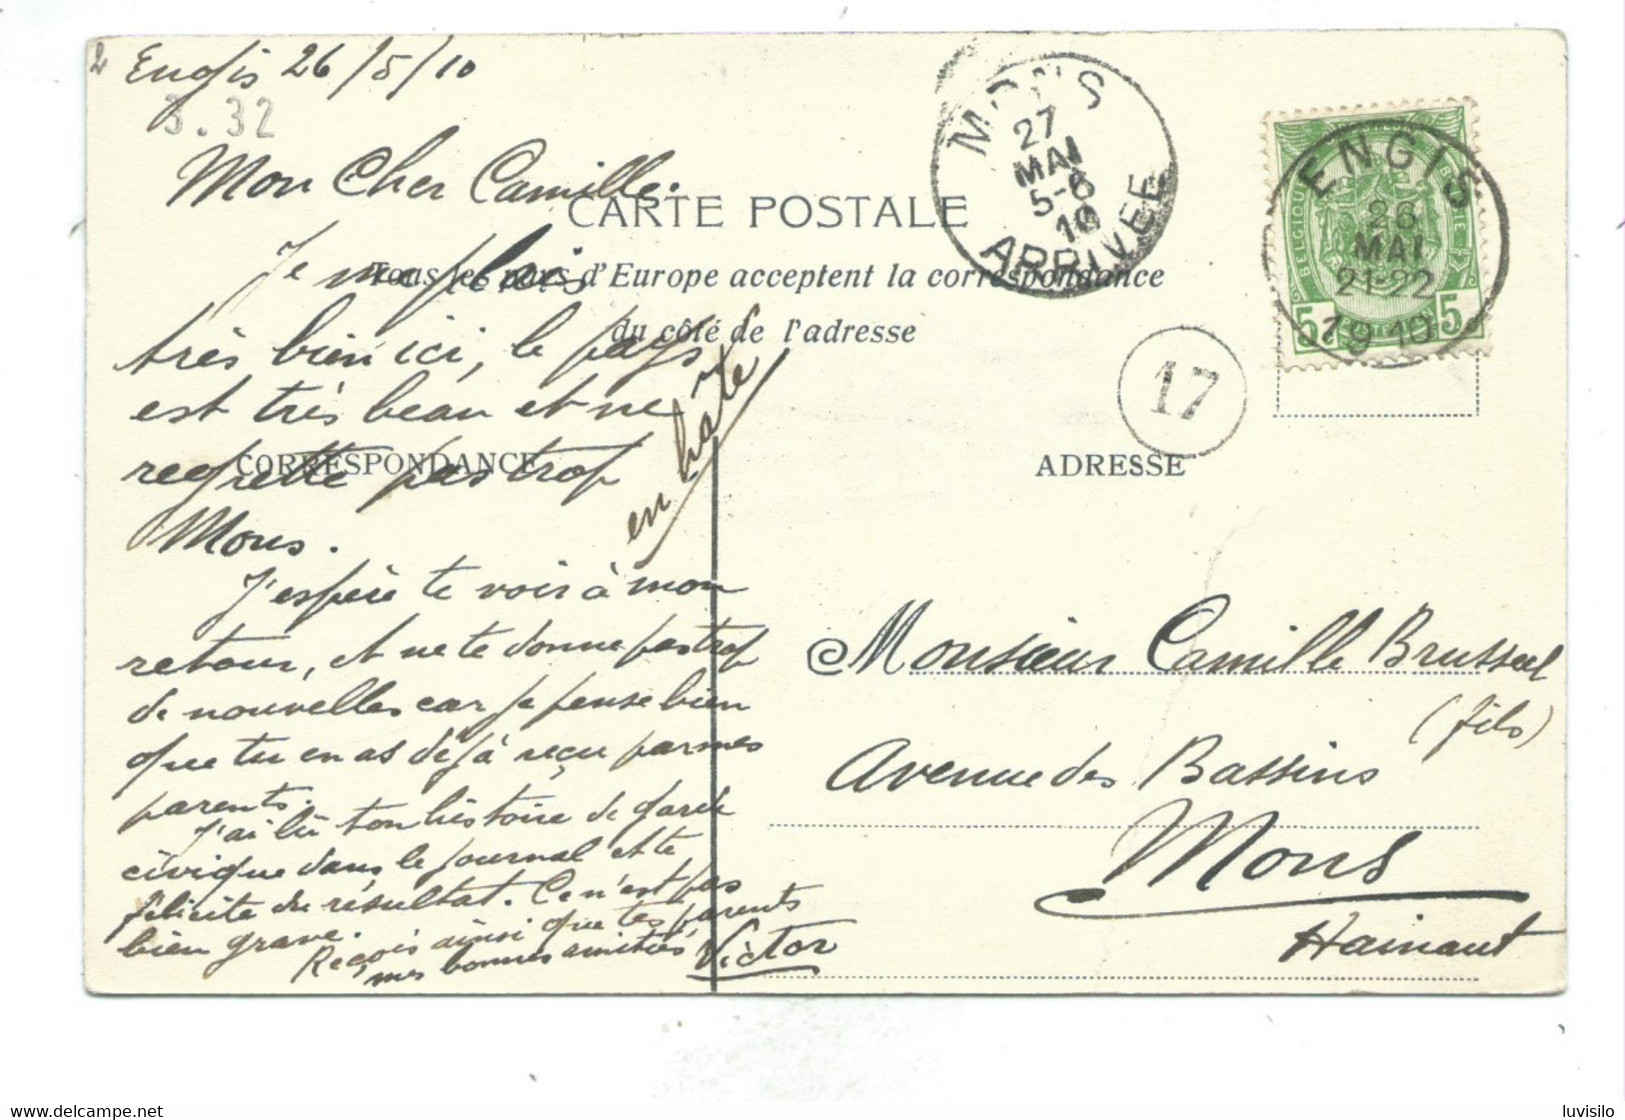 2
Engis 26/5/10
3.32
Mon Cher Camille.
CARTE POSTALE
Tous les pays d'Europe acceptent la correspondance
du côté de l'adresse
Je me plais
très bien ici, le pays
est très beau et ne
regrette pas trop
Mons.
en hâte
CORRESPONDANCE
J'espère te voir à mon
retour, et ne te donne pas trop
de nouvelles car je pense bien
que tu en as déjà reçu par mes
parents.
J'ai lu ton histoire de garde
civique dans le journal et te
félicite du résultat. Ce n'est pas
bien grave.
Reçois ainsi que tes parents
mes bonnes amitiés
Victor
MONS
27
MAI
5-6
10
ARRIVEE
ENGIS
26
MAI
21-22
1910
BELGIQUE
5 5
17
ADRESSE
Monsieur Camille Brusseel
(fils)
Avenue des Bassins
Mons
Hainaut
luvisilo for www.delcampe.net
luvisilo